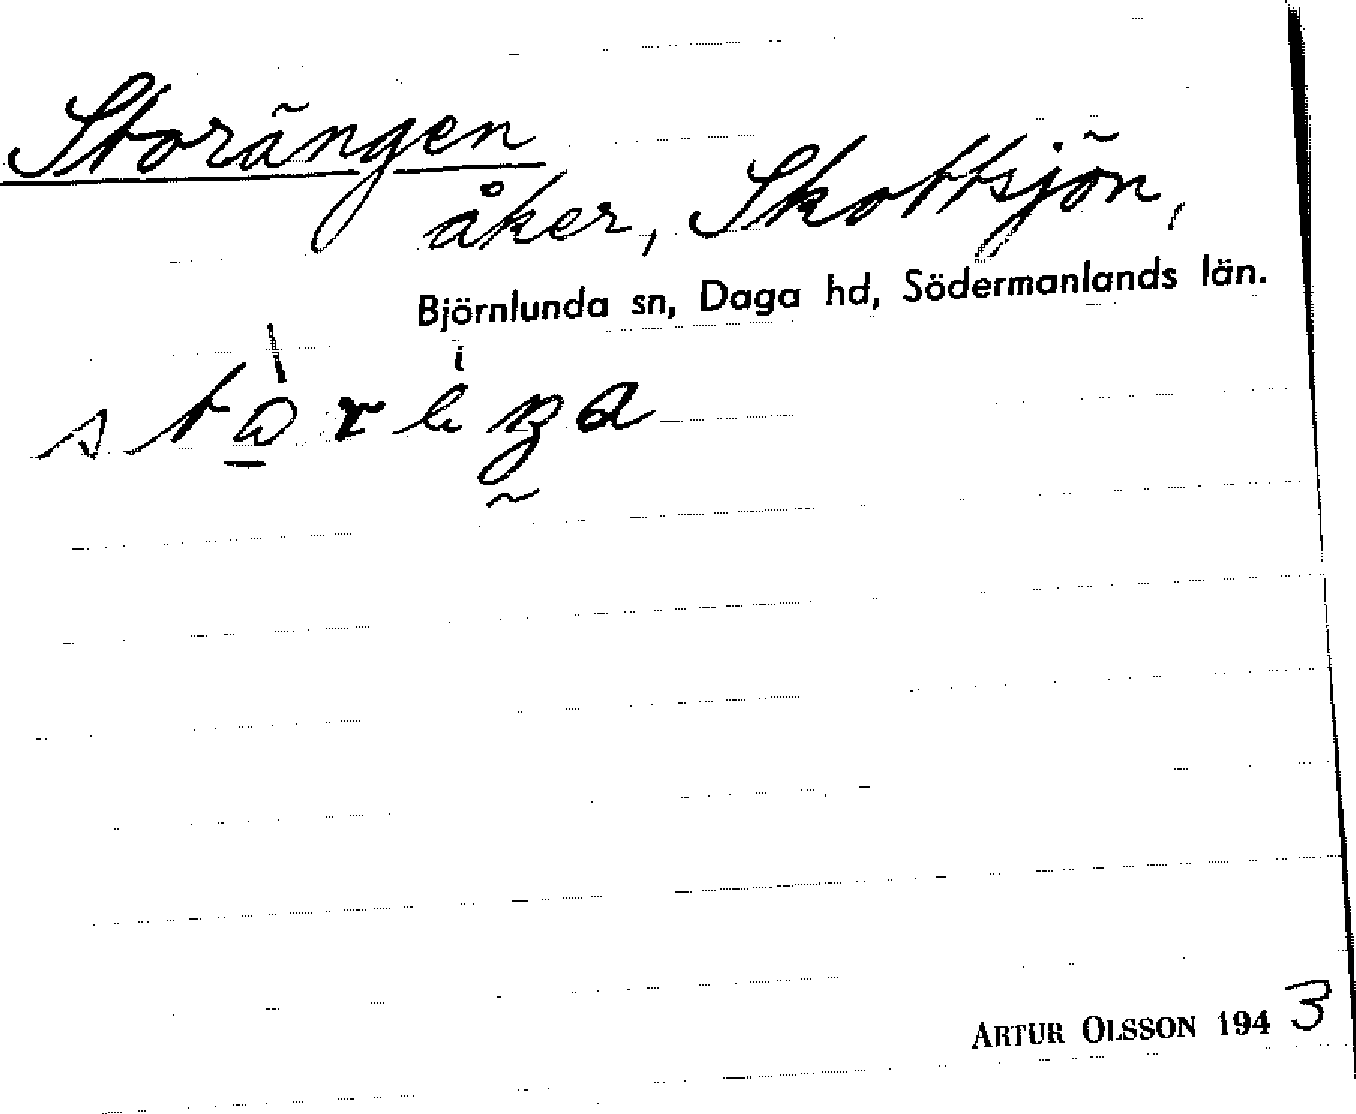 Storängen
åker, Skottsjön,
Björnlunda sn, Daga hd, Södermanlands län.
ARTUR OLSSON 1943